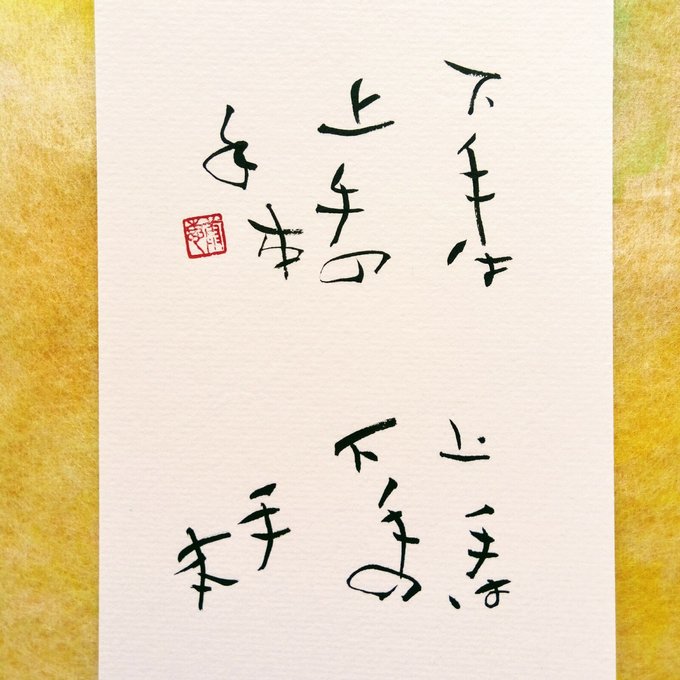 下手は
上手の
手本
上手は
下手の
手本